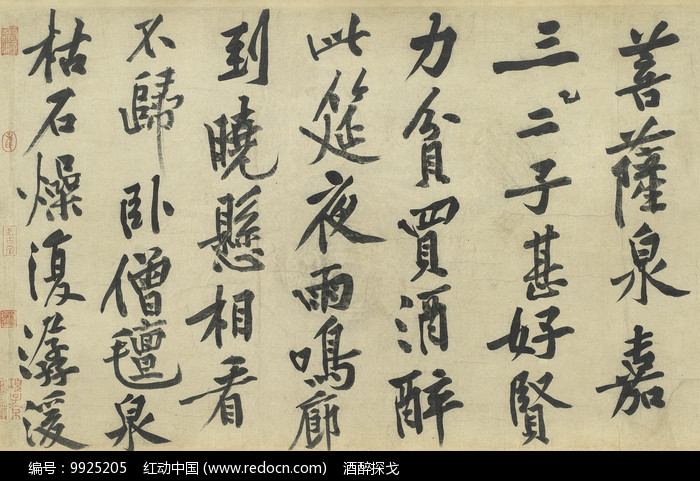 菩薩泉嘉
三二子甚好賢
力貧買酒醉
此筵夜雨鳴廊
到曉懸相看
不歸臥僧氊泉
枯石燥復潺湲
编号：9925205 红动中国 (www.redocn.com) 酒醉探戈